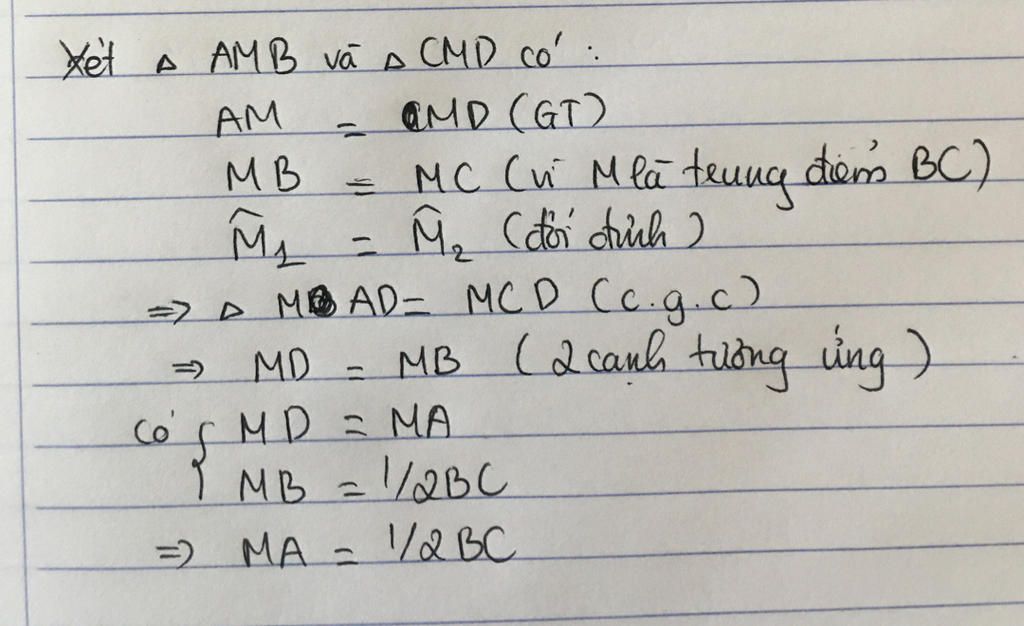 Xét △ AMB và △ CMD có:
AM = MD (GT)
MB = MC (vì M là trung điểm BC)
M̂1 = M̂2 (đối đỉnh)
=> △ MAD = MCD (c.g.c)
=> MD = MB (2 cạnh tương ứng)
có { MD = MA
MB = 1/2BC
=> MA = 1/2BC